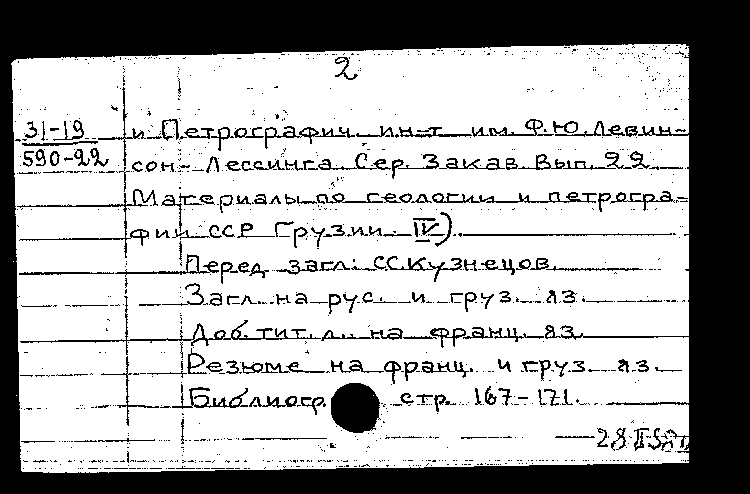 2
31-19
590-22
и Петрографич. ин-т им. Ф.Ю.Левин-
сон-Лессинга. Сер. Закав. Вып. 22.
Материалы по геологии и петрогра-
фии ССР Грузии. IV).
Перед загл: С.С.Кузнецов.
Загл. на рус. и груз. яз.
Доб. тит. л. на франц. яз.
Резюме на франц. и груз. яз.
Библиогр. стр. 167-171.